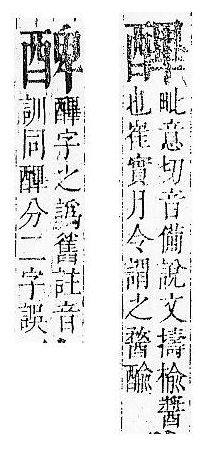 毗意切音備說文擣榆醬
也崔實月令謂之𨡭䤅
字之譌舊註音
訓同 分二字誤